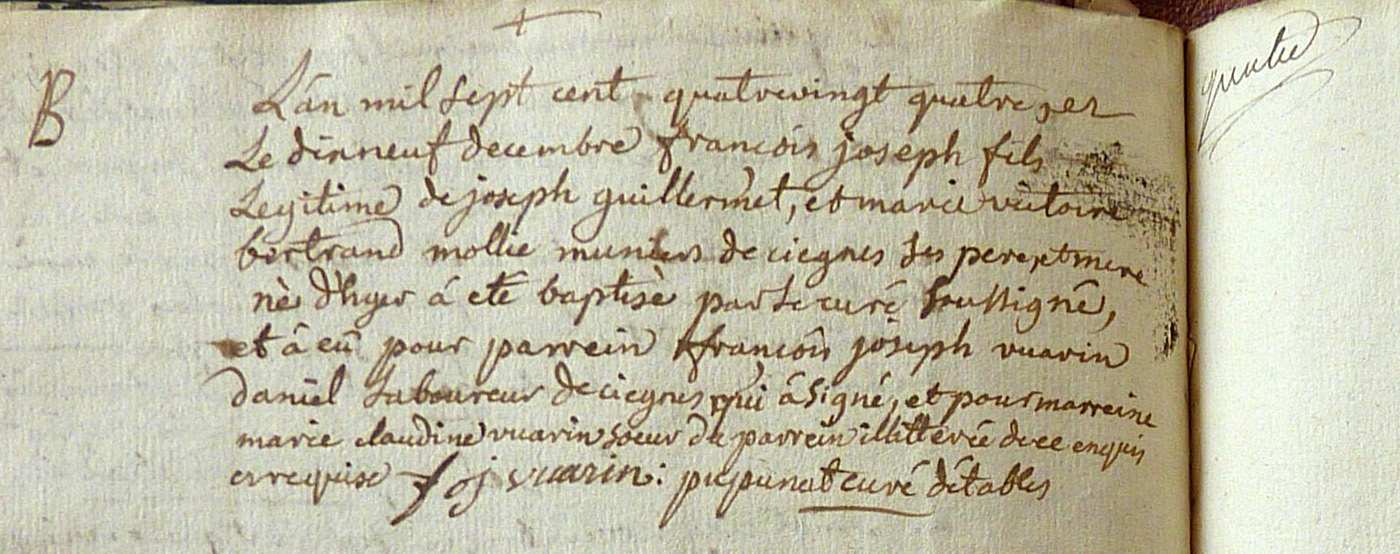 B
L'án mil sept cent quatrevingt quatre, et
Le dixneuf decembre françois joseph fils
Legitime de joseph guillermet, et marie victoire
bertrand mollie muniers de ciegnes ses pere, et mere
nè d'hyer á etê baptisè par Le curé soussigné,
et â eû pour parrein françois joseph vuarin
daniel Laboureur de ciegnes qui â signé, et pour marreine
marie claudine vuarin soeur du parrein illitterée de ce enquis
et requise f j vuarin: curé d'étables